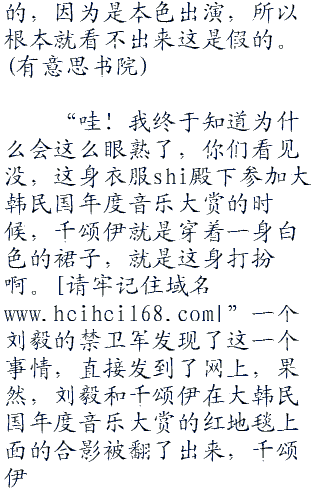 的，因为是本色出演，所以
根本就看不出来这是假的。
(有意思书院)
“哇！我终于知道为什
么会这么眼熟了，你们看见
没，这身衣服shi殿下参加大
韩民国年度音乐大赏的时
候，千颂伊就是穿着一身白
色的裙子，就是这身打扮
啊。[请牢记住域名
www.hcihci168.com|”一个
刘毅的禁卫军发现了这一个
事情，直接发到了网上，果
然，刘毅和千颂伊在大韩民
国年度音乐大赏的红地毯上
面的合影被翻了出来，千颂
伊